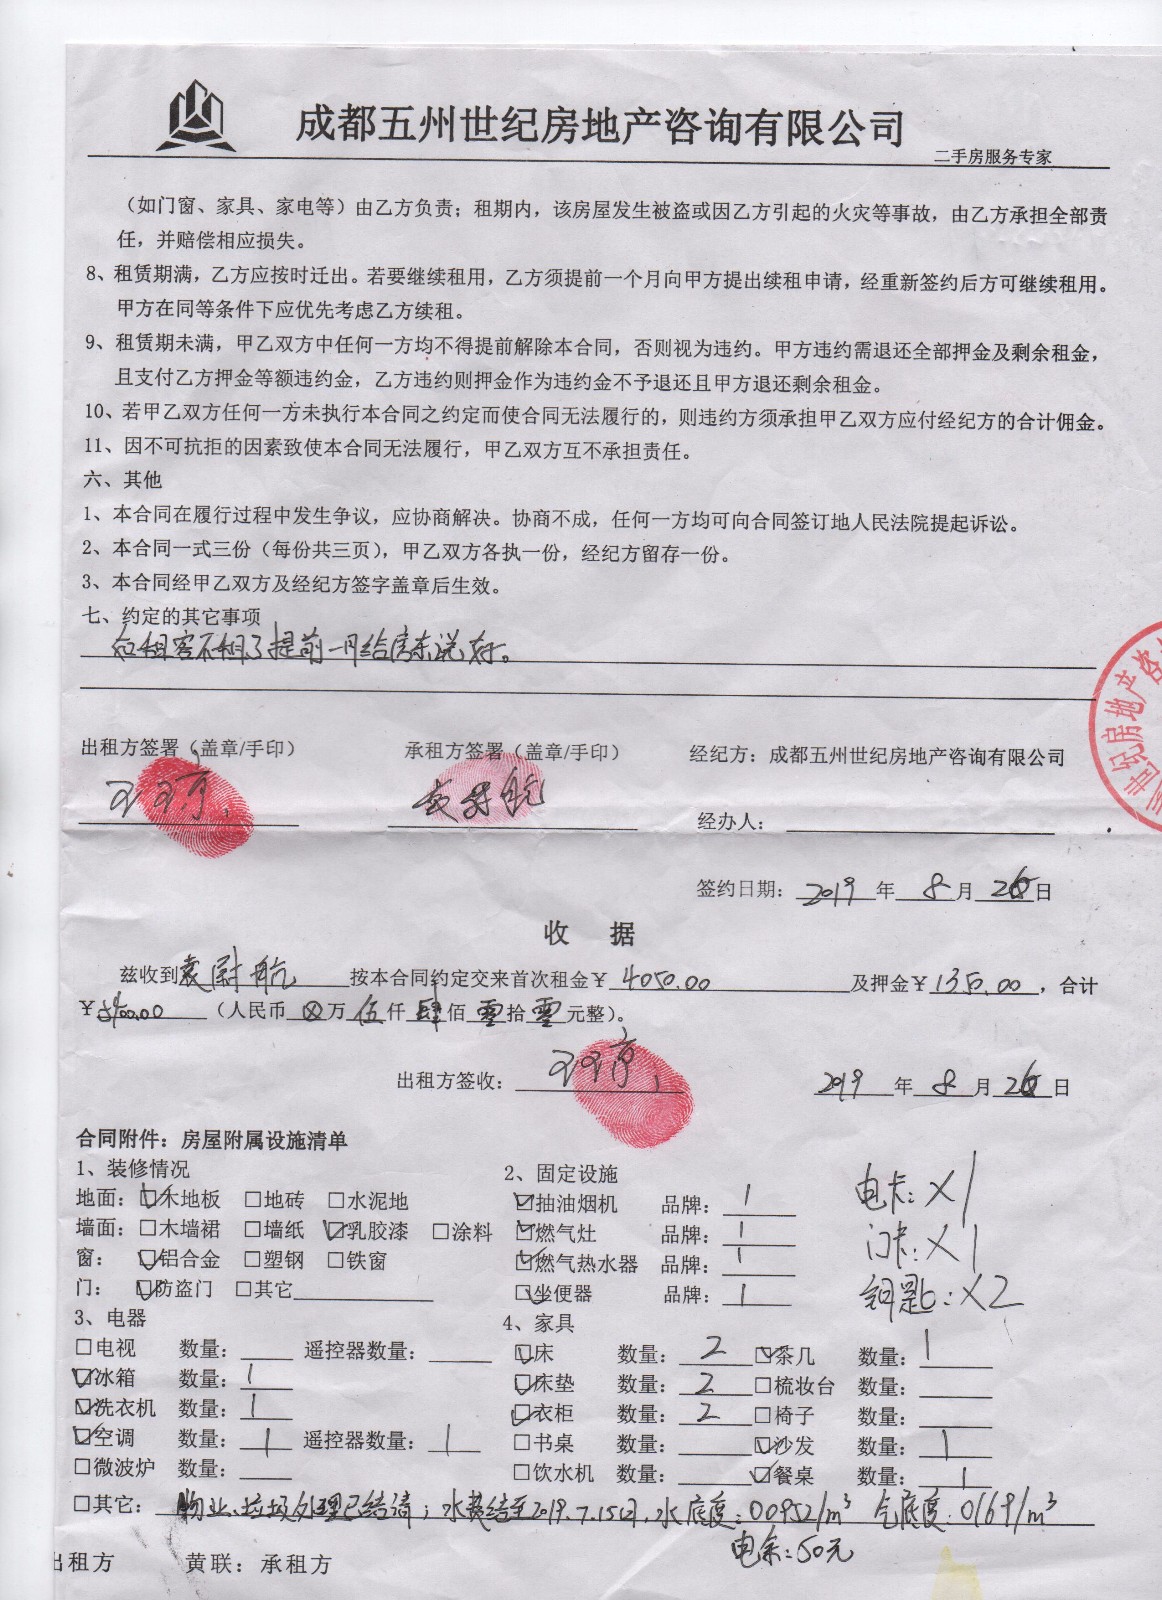 成都五州世纪房地产咨询有限公司
二手房服务专家
（如门窗、家具、家电等）由乙方负责；租期内，该房屋发生被盗或因乙方引起的火灾等事故，由乙方承担全部责
任，并赔偿相应损失。
8、租赁期满，乙方应按时迁出。若要继续租用，乙方须提前一个月向甲方提出续租申请，经重新签约后方可继续租用。
甲方在同等条件下应优先考虑乙方续租。
9、租赁期未满，甲乙双方中任何一方均不得提前解除本合同，否则视为违约。甲方违约需退还全部押金及剩余租金，
且支付乙方押金等额违约金，乙方违约则押金作为违约金不予退还且甲方退还剩余租金。
10、若甲乙双方任何一方未执行本合同之约定而使合同无法履行的，则违约方须承担甲乙双方应付经纪方的合计佣金。
11、因不可抗拒的因素致使本合同无法履行，甲乙双方互不承担责任。
六、其他
1、本合同在履行过程中发生争议，应协商解决。协商不成，任何一方均可向合同签订地人民法院提起诉讼。
2、本合同一式三份（每份共三页），甲乙双方各执一份，经纪方留存一份。
3、本合同经甲乙双方及经纪方签字盖章后生效。
七、约定的其它事项
如租客不租了提前一月给房东说好。
出租方签署（盖章/手印） 承租方签署（盖章/手印） 经纪方：成都五州世纪房地产咨询有限公司
袁尉航
经办人：
签约日期：2019年8月26日
州世纪房地产咨
收 据
兹收到袁尉航按本合同约定交来首次租金￥4050.00及押金￥1350.00，合计
￥5400.00（人民币⊗万伍仟肆佰零拾零元整）。
出租方签收： 2019年8月26日
合同附件：房屋附属设施清单
1、装修情况 2、固定设施
地面：☑木地板 □地砖 □水泥地 ☑抽油烟机 品牌：1 电卡：X1
墙面：□木墙裙 □墙纸 ☑乳胶漆 □涂料 ☑燃气灶 品牌：1 门卡：X1
窗： ☑铝合金 □塑钢 □铁窗 ☑燃气热水器 品牌：1
门： ☑防盗门 □其它 ☑坐便器 品牌：1 钥匙：X2
3、电器 4、家具
□电视 数量： 遥控器数量： ☑床 数量：2 ☑茶几 数量：1
☑冰箱 数量：1 ☑床垫 数量：2 □梳妆台 数量：
☑洗衣机 数量：1 ☑衣柜 数量：2 □椅子 数量：
☑空调 数量：1 遥控器数量：1 □书桌 数量： ☑沙发 数量：1
□微波炉 数量： □饮水机 数量： ☑餐桌 数量：1
□其它：物业、垃圾处理已结清；水费结至2019.7.15日，水底度：00952/m³ 气底度：0169/m³
电余：50元
出租方 黄联：承租方